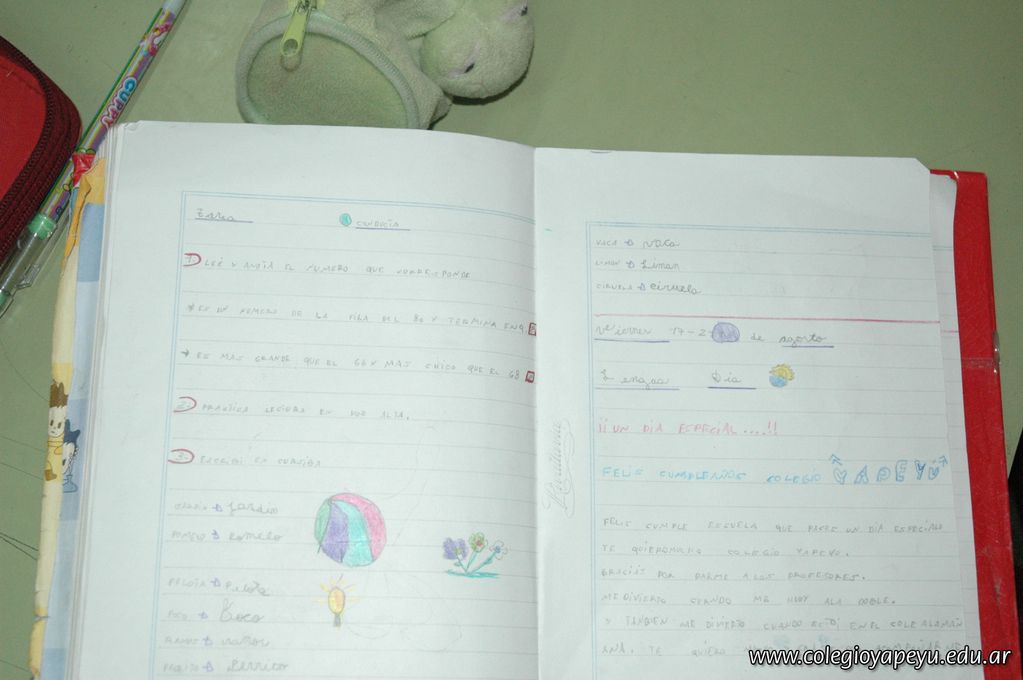 CUPPY
Tarea
CONDUCTA
1- LEE Y ANOTÁ EL NUMERO QUE CORRESPONDE
* ES UN NUMERO DE LA FILA DEL 80 Y TERMINA EN 9.
→ ES MAS GRANDE QUE EL 66 Y MAS CHICO QUE EL 68
2- PRACTICA LECTURA EN VOZ ALTA.
3- ESCRIBÍ EN CURSIVA
Jardin
POMELO
PELOTA Pelota
Perrito
Rivadavia
VACA vaca
LIMON Limon
CIRUELA ciruela
Viernes 17-2- de agosto
Lengua Dia
¡¡UN DIA ESPECIAL....!!
FELIS CUMPLEAÑOS COLEGIO YAPEYÚ
FELIS CUMPLE ESCUELA QUE PASES UN DIA ESPECIAL
TE QUIERO MUCHO COLEGIO YAPEYU.
GRACIAS POR DARME A LOS PROFESORES.
ME DIVIERTO CUANDO ME VOOY ALA DOBLE.
Y TANBIEN ME DIVIERTO CUANDO ESTOI EN EL COLE ALAMAÑ
ANA. TE QUIERO
www.colegioyapeyu.edu.ar